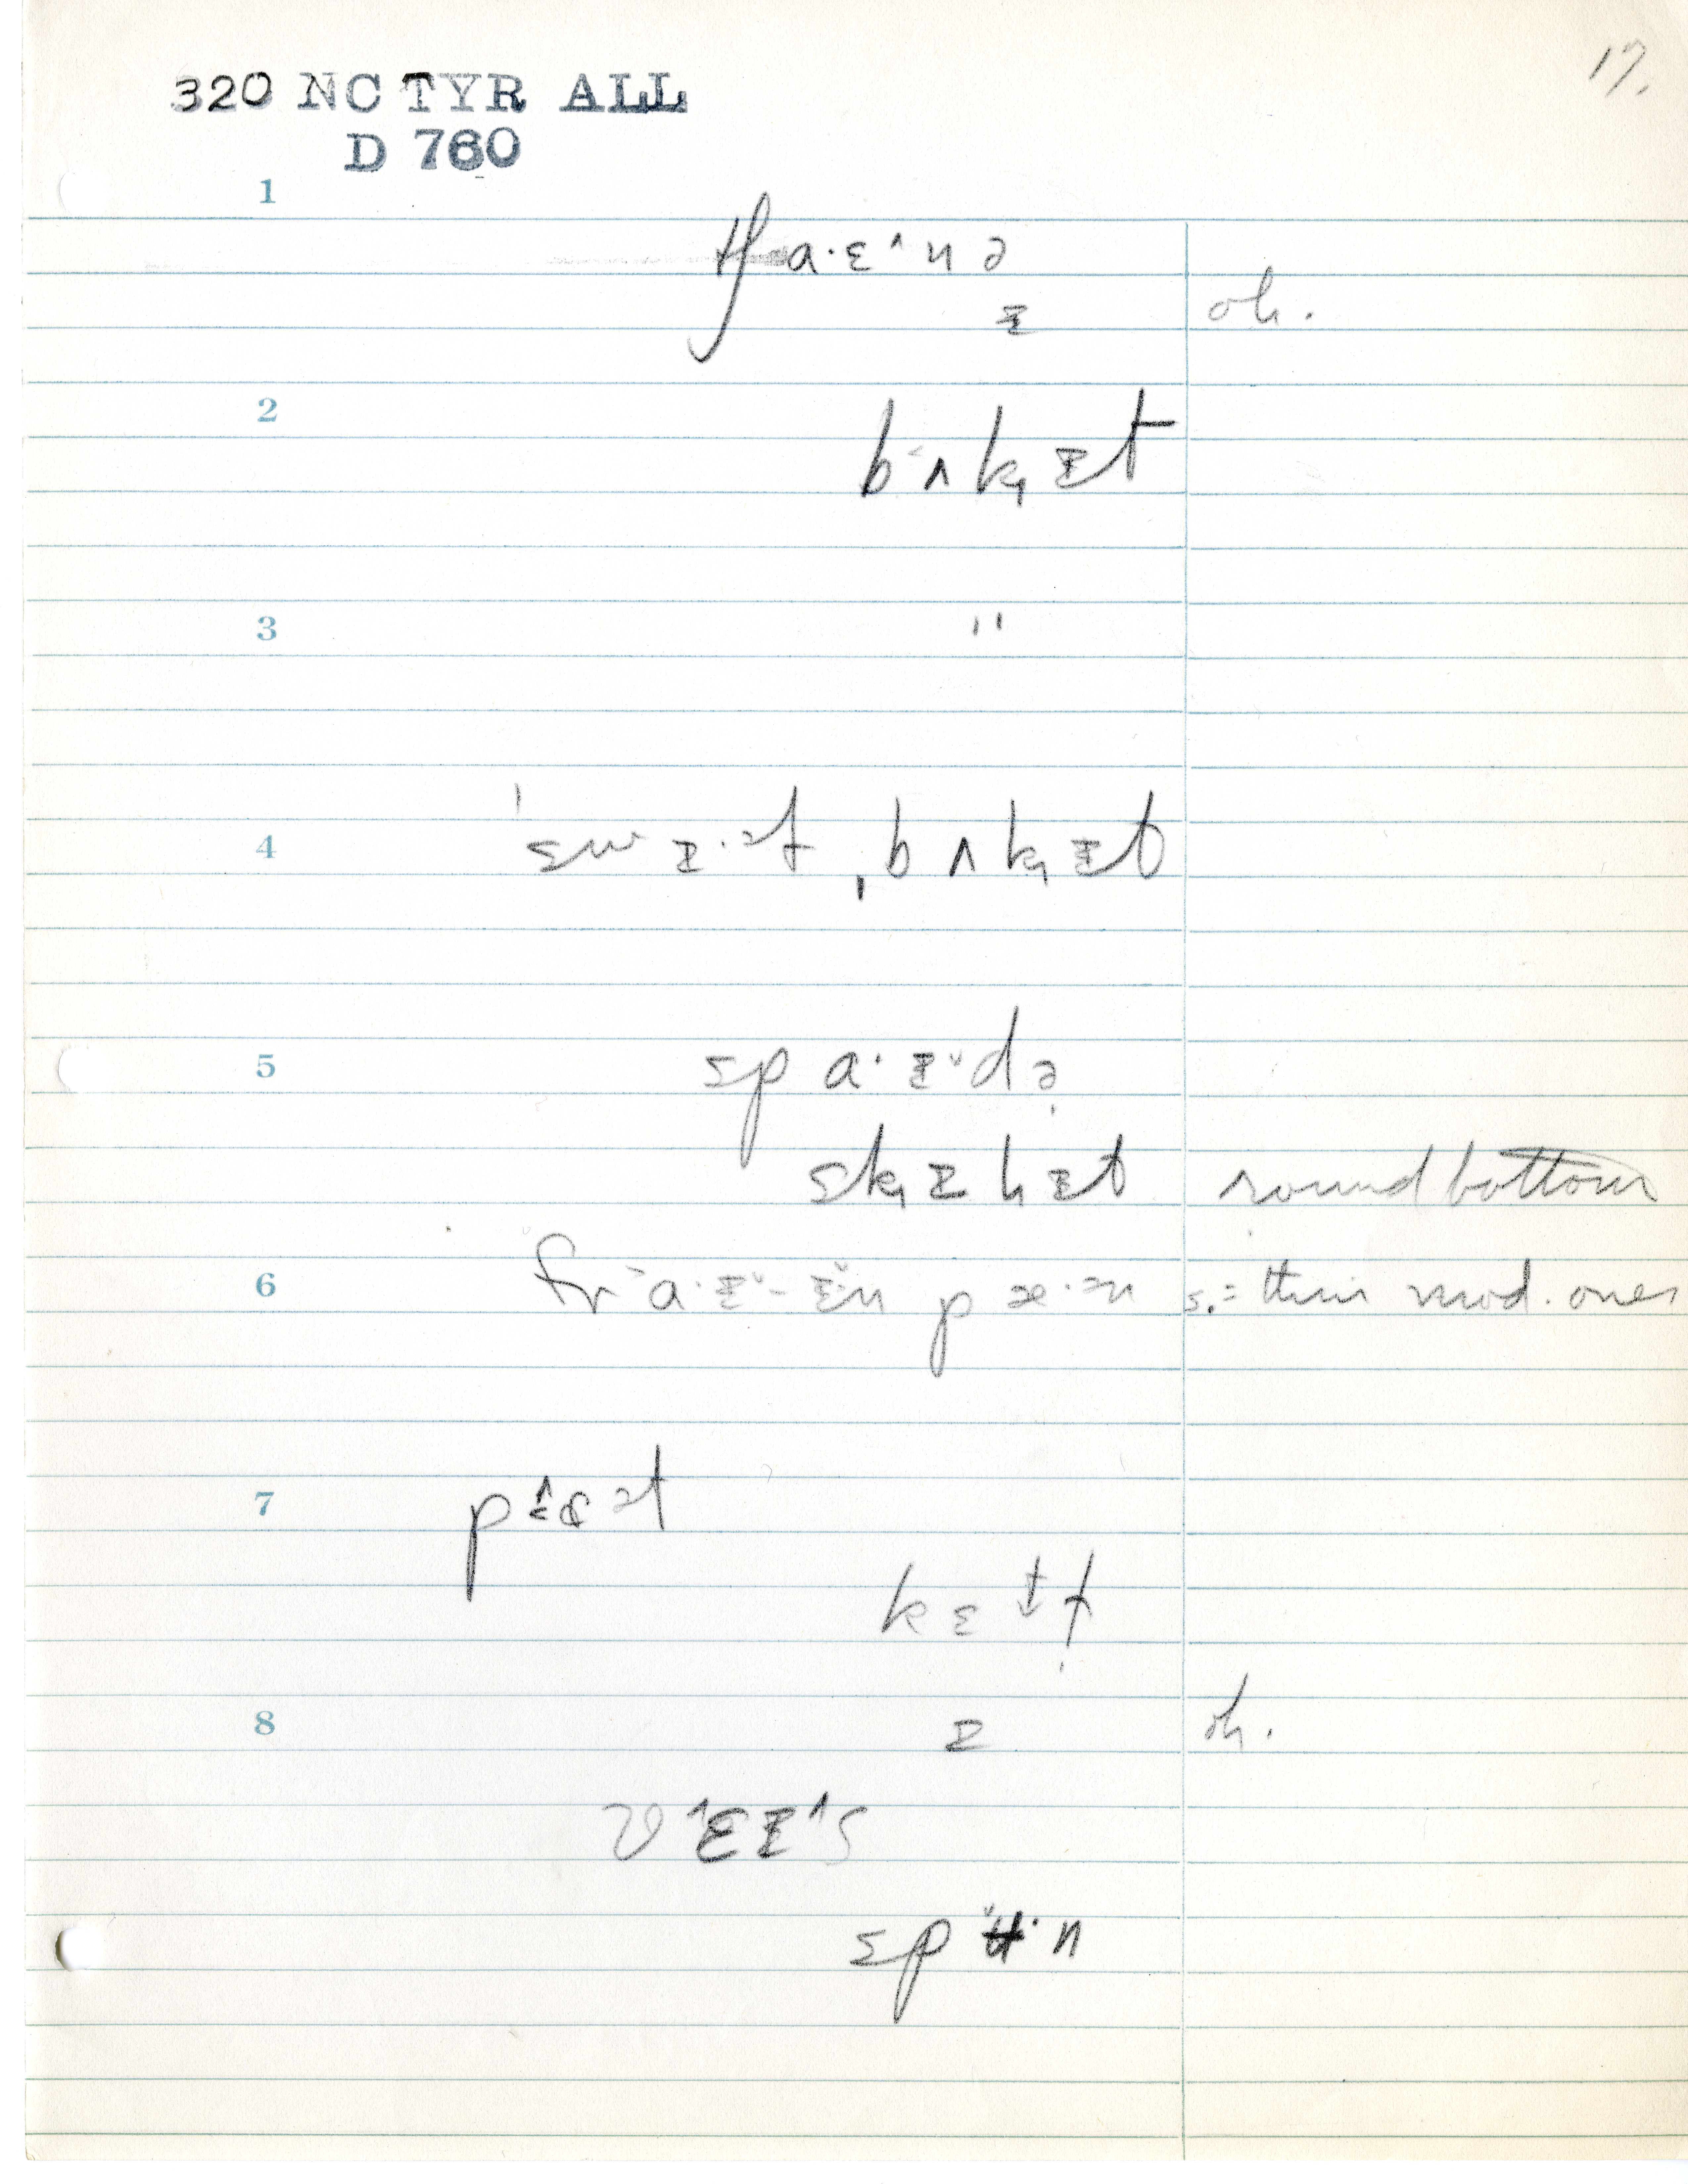 17.
320 NC TYR ALL
D 760
1
tʃa·ɛ˄nə
ɪ oh.
2
bʌkɪt
3
"
4
ˈswɪ·ət ˌbʌkɪt
5
spa·ɪ˅də
skɪlɪt round bottom
6
fr˃a·ɪ˅-ɪ˅n pæ·ən s.= thin mod. ones
7
kɛtɫ
8
ɪ oh.
v˄ɛɪ˄s
spʉ˅·n